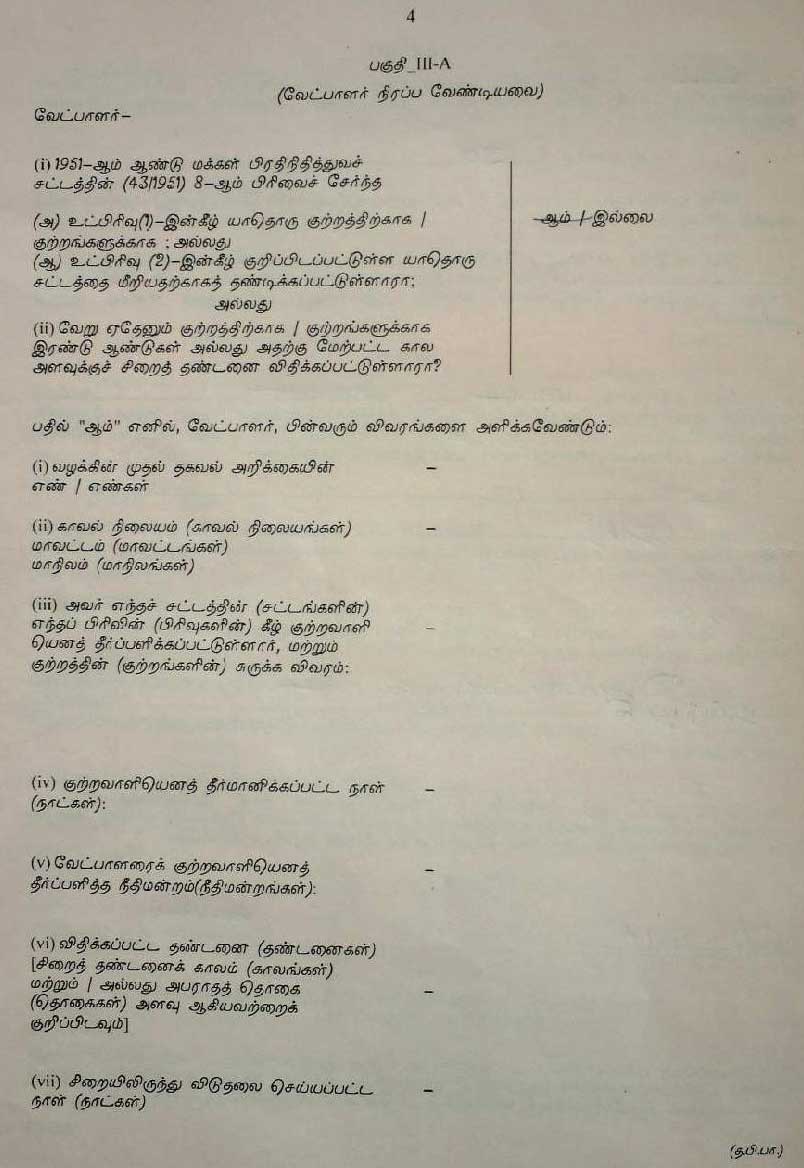 4
பகுதி_III-A
(வேட்பாளர் நிரப்ப வேண்டியவை)
வேட்பாளர்–
(i) 1951–ஆம் ஆண்டு மக்கள் பிரதிநிதித்துவச்
சட்டத்தின் (43/1951) 8–ஆம் பிரிவைச் சேர்ந்த
(அ) உட்பிரிவு(1)–இன்கீழ் யாதொரு குற்றத்திற்காக |
ஆம் | இல்லை
குற்றங்களுக்காக ; அல்லது
(ஆ) உட்பிரிவு (2)–இன்கீழ் குறிப்பிடப்பட்டுள்ள யாதொரு
சட்டத்தை மீறியதற்காகத் தண்டிக்கப்பட்டுள்ளாரா;
அல்லது
(ii) வேறு ஏதேனும் குற்றத்திற்காக | குற்றங்களுக்காக
இரண்டு ஆண்டுகள் அல்லது அதற்கு மேற்பட்ட கால
அளவுக்குச் சிறைத் தண்டனை விதிக்கப்பட்டுள்ளாரா?
பதில் "ஆம்" எனில், வேட்பாளர், பின்வரும் விவரங்களை அளிக்கவேண்டும்:
(i) வழக்கின் முதல் தகவல் அறிக்கையின் –
எண் | எண்கள்
(ii) காவல் நிலையம் (காவல் நிலையங்கள்) –
மாவட்டம் (மாவட்டங்கள்)
மாநிலம் (மாநிலங்கள்)
(iii) அவர் எந்தச் சட்டத்தின் (சட்டங்களின்)
எந்தப் பிரிவின் (பிரிவுகளின்) கீழ் குற்றவாளி –
யெனத் தீர்ப்பளிக்கப்பட்டுள்ளார், மற்றும்
குற்றத்தின் (குற்றங்களின்) சுருக்க விவரம்:
(iv) குற்றவாளியெனத் தீர்மானிக்கப்பட்ட நாள் –
(நாட்கள்):
(v) வேட்பாளரைக் குற்றவாளியெனத் –
தீர்ப்பளித்த நீதிமன்றம்(நீதிமன்றங்கள்):
(vi) விதிக்கப்பட்ட தண்டனை (தண்டனைகள்)
[சிறைத் தண்டனைக் காலம் (காலங்கள்)
மற்றும் | அல்லது அபராதத் தொகை –
(தொகைகள்) அளவு ஆகியவற்றைக்
குறிப்பிடவும்]
(vii) சிறையிலிருந்து விடுதலை செய்யப்பட்ட –
நாள் (நாட்கள்)
(த.பி.பா.)